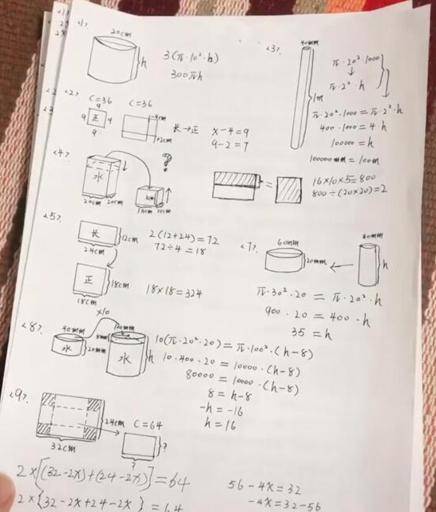 <1>
20cm
h
3(π·10²·h)
300πh
<3>
40mm
1m
π·20²·1000
π·2²·h
π·20²·1000=π·2²·h
400·1000=4h
100000=h
100000mm=100m
<2>
C=36
C=36
9
9 正 9
9
长→正
x-4=9
9-2=7
<4>
水
20cm 20cm
10cm
16×10×5=800
800÷(20×20)=2
<5>
长 12cm
24cm
2(12+24)=72
72÷4=18
正 18cm
18cm
18×18=324
<7>
60mm
20mm
h
π·30²·20=π·20²·h
900·20=400·h
35=h
<8>
×10
40mm
水 20mm
8mm
水 h
10(π·20²·20)=π·100²·(h-8)
10·400·20=10000·(h-8)
80000=10000·(h-8)
8=h-8
-h=-16
h=16
<9>
24cm
32cm
C=64
?
?
2×[(32-2x)+(24-2x)]=64
2×{32-2x+24-2x}=64
56-4x=32
-4x=32-56